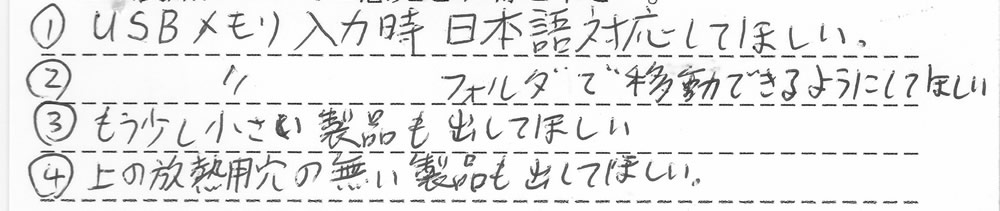 ① USBメモリ入力時 日本語対応してほしい。
② 〃 フォルダで移動できるようにしてほしい
③ もう少し小さい製品も出してほしい
④ 上の放熱用穴の無い製品も出してほしい。